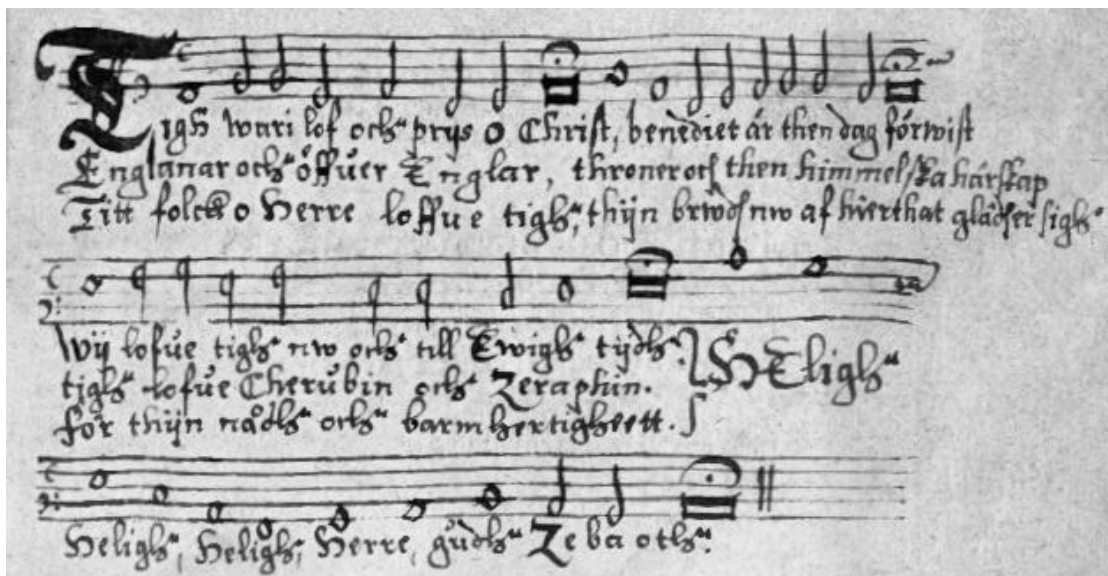 Tigh wari lof och prijs o Christ, benediet är then dag förwist
Englanar och öffuer Englar, throner och then himmelska härskap
Titt folck o Herre loffue tigh, thijn brwdh nw af hierthat glädher sigh
Wij lofue tigh nw och till Ewigh tijdh. HEligh
tigh lofue Cherubin och Zeraphin.
för thijn nådh och barmhertigheett.
Heligh, Heligh, Herre, gudh Zebaoth.